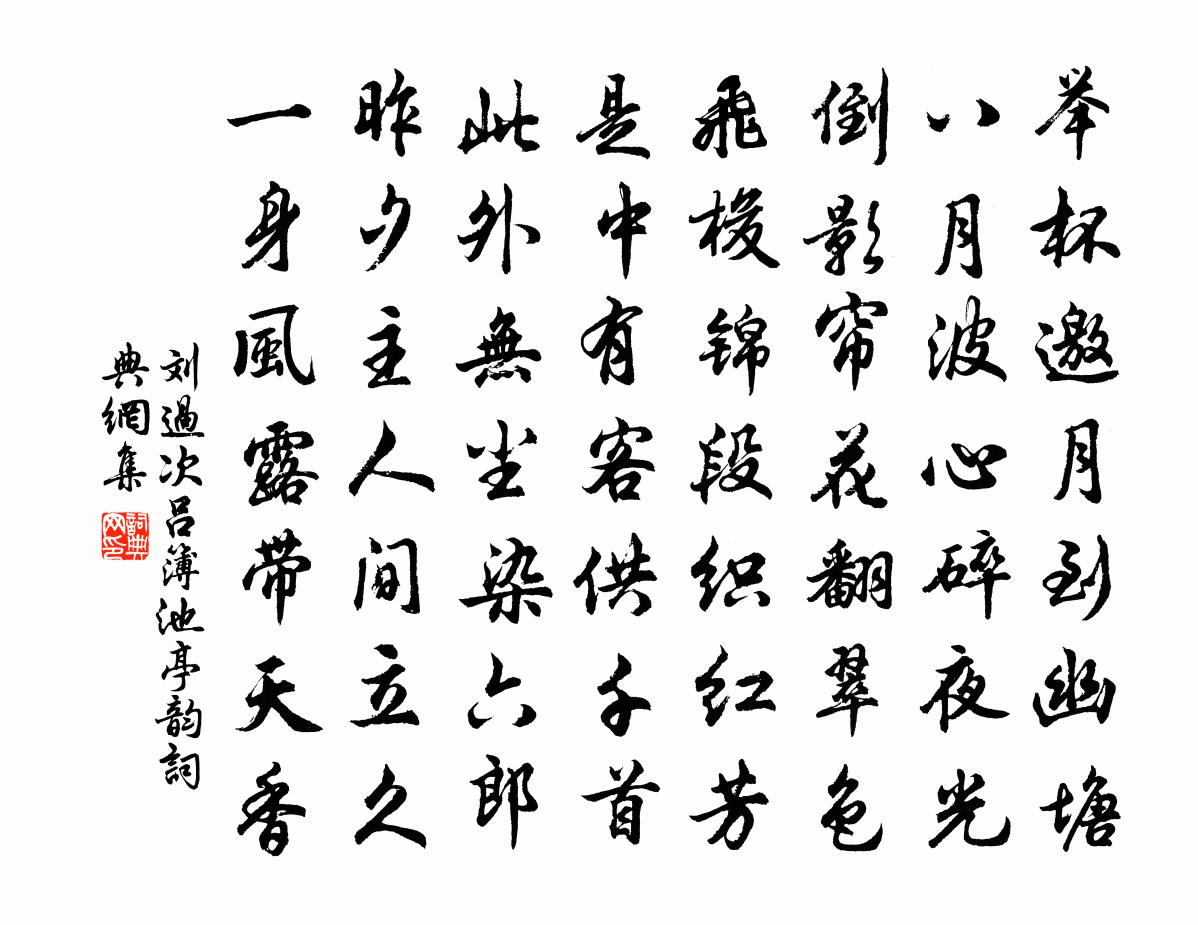 举杯邀月到幽塘
八月波心碎夜光
倒影帘花翻翠色
飛梭锦段织红芳
是中有客供千首
此外無尘染六郎
昨夕主人间立久
一身風露带天香
刘過次呂簿池亭韵詞
典網集
詞典网印